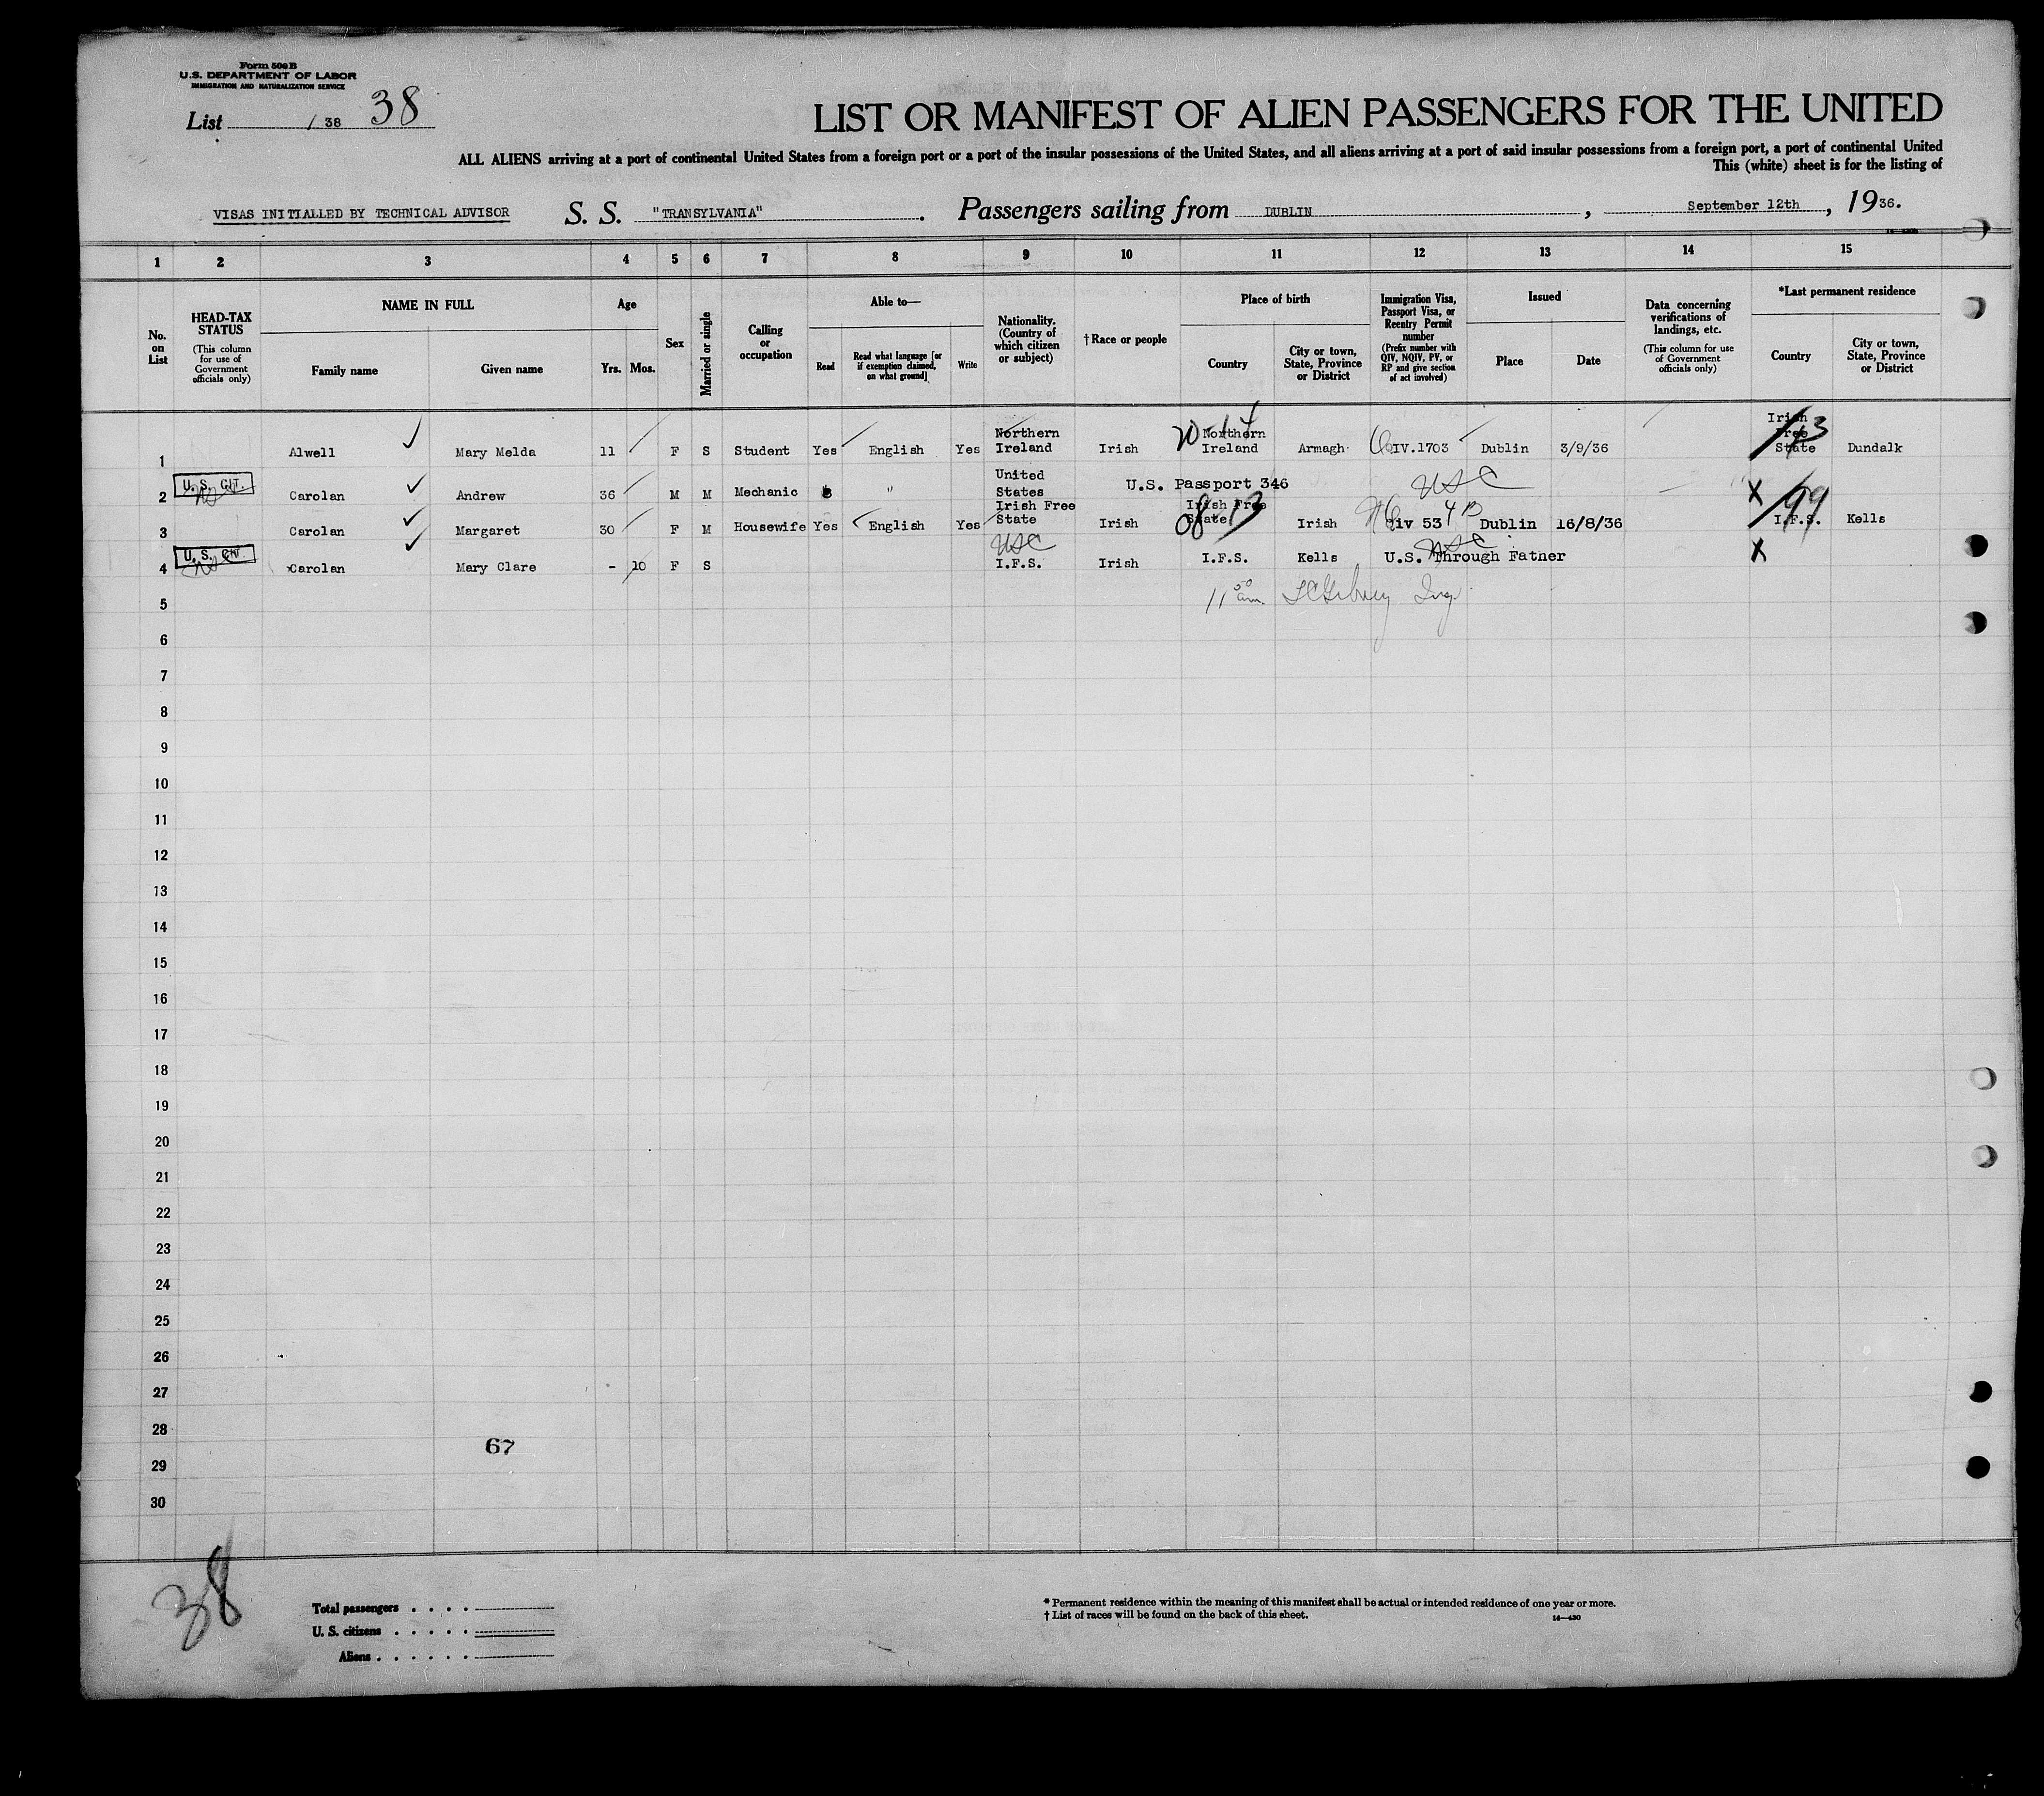 Form 500 B
U.S. DEPARTMENT OF LABOR
IMMIGRATION AND NATURALIZATION SERVICE
List / 38 38
LIST OR MANIFEST OF ALIEN PASSENGERS FOR THE UNITED
ALL ALIENS arriving at a port of continental United States from a foreign port or a port of the insular possessions of the United States, and all aliens arriving at a port of said insular possessions from a foreign port, a port of continental United
This (white) sheet is for the listing of
VISAS INITIALLED BY TECHNICAL ADVISOR S. S. "TRANSYLVANIA". Passengers sailing from DUBLIN, September 12th, 1936.
1 2 3 4 5 6 7 8 9 10 11 12 13 14 15
No. on List
HEAD-TAX STATUS
(This column for use of Government officials only)
NAME IN FULL
Family name Given name
Age
Yrs. Mos.
Sex
Married or single
Calling or occupation
Able to—
Read Read what language [or if exemption claimed, on what ground] Write
Nationality. (Country of which citizen or subject)
†Race or people
Place of birth
Country City or town, State, Province or District
Immigration Visa, Passport Visa, or Reentry Permit number
(Prefix number with QIV, NQIV, PV, or RP and give section of act involved)
Issued
Place Date
Data concerning verifications of landings, etc.
(This column for use of Government officials only)
*Last permanent residence
Country City or town, State, Province or District
1 Alwell Mary Melda 11 F S Student Yes English Yes Northern Ireland Irish Northern Ireland Armagh QIV.1703 Dublin 3/9/36 Irish Free State Dundalk
2 U. S. CIT. Carolan Andrew 36 M M Mechanic " United States U.S. Passport 346 USC X
3 Carolan Margaret 30 F M Housewife Yes English Yes Irish Free State Irish Irish Free State Irish Qiv 53 Dublin 16/8/36 I.F.S. Kells
4 U. S. CIT. Carolan Mary Clare - 10 F S USC I.F.S. Irish I.F.S. Kells U.S. Through Father USC X
5
6
7
8
9
10
11
12
13
14
15
16
17
18
19
20
21
22
23
24
25
26
27
28
67
29
30
38
Total passengers
U. S. citizens
Aliens
* Permanent residence within the meaning of this manifest shall be actual or intended residence of one year or more.
† List of races will be found on the back of this sheet.
14—430